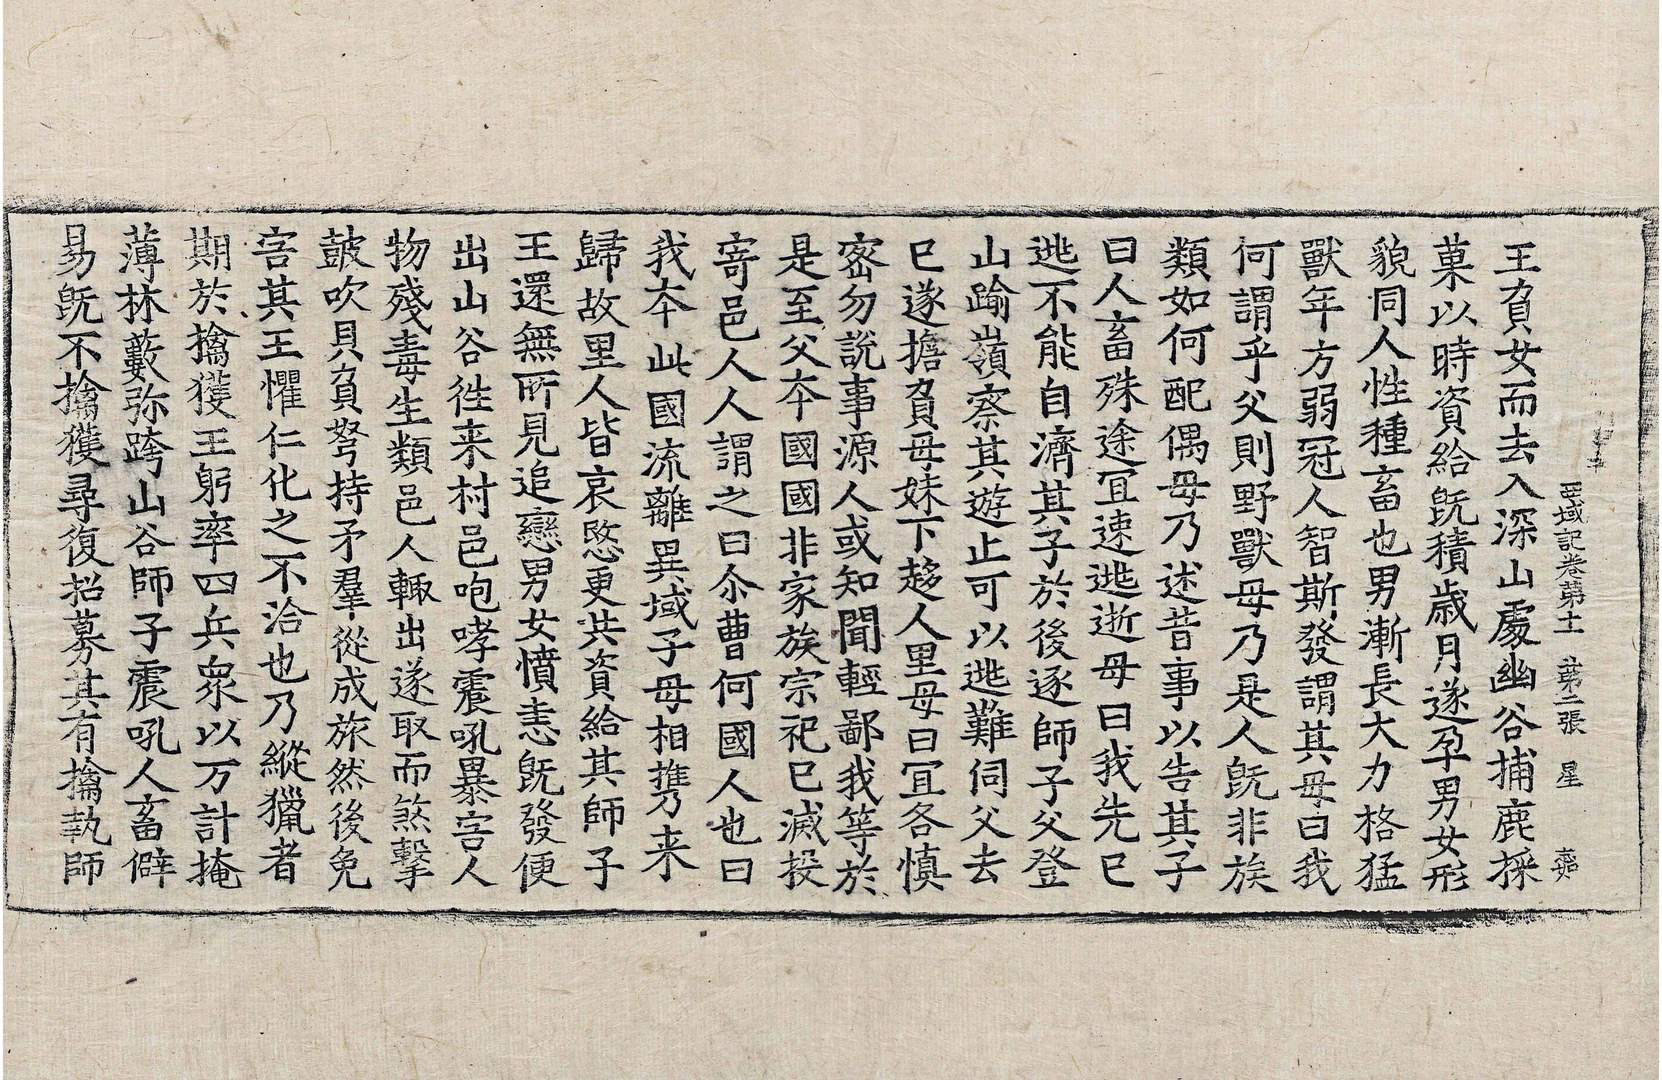 西域記卷苐十一 苐二張 星
王負女而去入深山處幽谷捕鹿採
菓以時資給旣積歲月遂孕男女形
貌同人性種畜也男漸長大力格猛
獸年方弱冠人智斯發謂其母曰我
何謂乎父則野獸母乃是人旣非族
類如何配偶母乃述昔事以告其子
曰人畜殊途冝速逃逝母曰我先已
逃不能自濟其子於後逐師子父登
山踰嶺察其遊止可以逃難伺父去
已遂擔負母妹下趍人里母曰冝各慎
密勿說事源人或知聞輕鄙我等於
是至父夲國國非家族宗祀已滅投
寄邑人人謂之曰尒曹何國人也曰
我夲此國流離異域子母相携来
歸故里人皆哀愍更共資給其師子
王還無所見追戀男女憤恚旣發便
出山谷徃来村邑咆哮震吼暴害人
物殘毒生類邑人輙出遂取而煞擊
皷吹貝負弩持矛羣從成旅然後免
害其王懼仁化之不洽也乃縱獵者
期於擒獲王躬率四兵衆以万計掩
薄林藪弥跨山谷師子震吼人畜僻
易旣不擒獲尋復招募其有擒執師